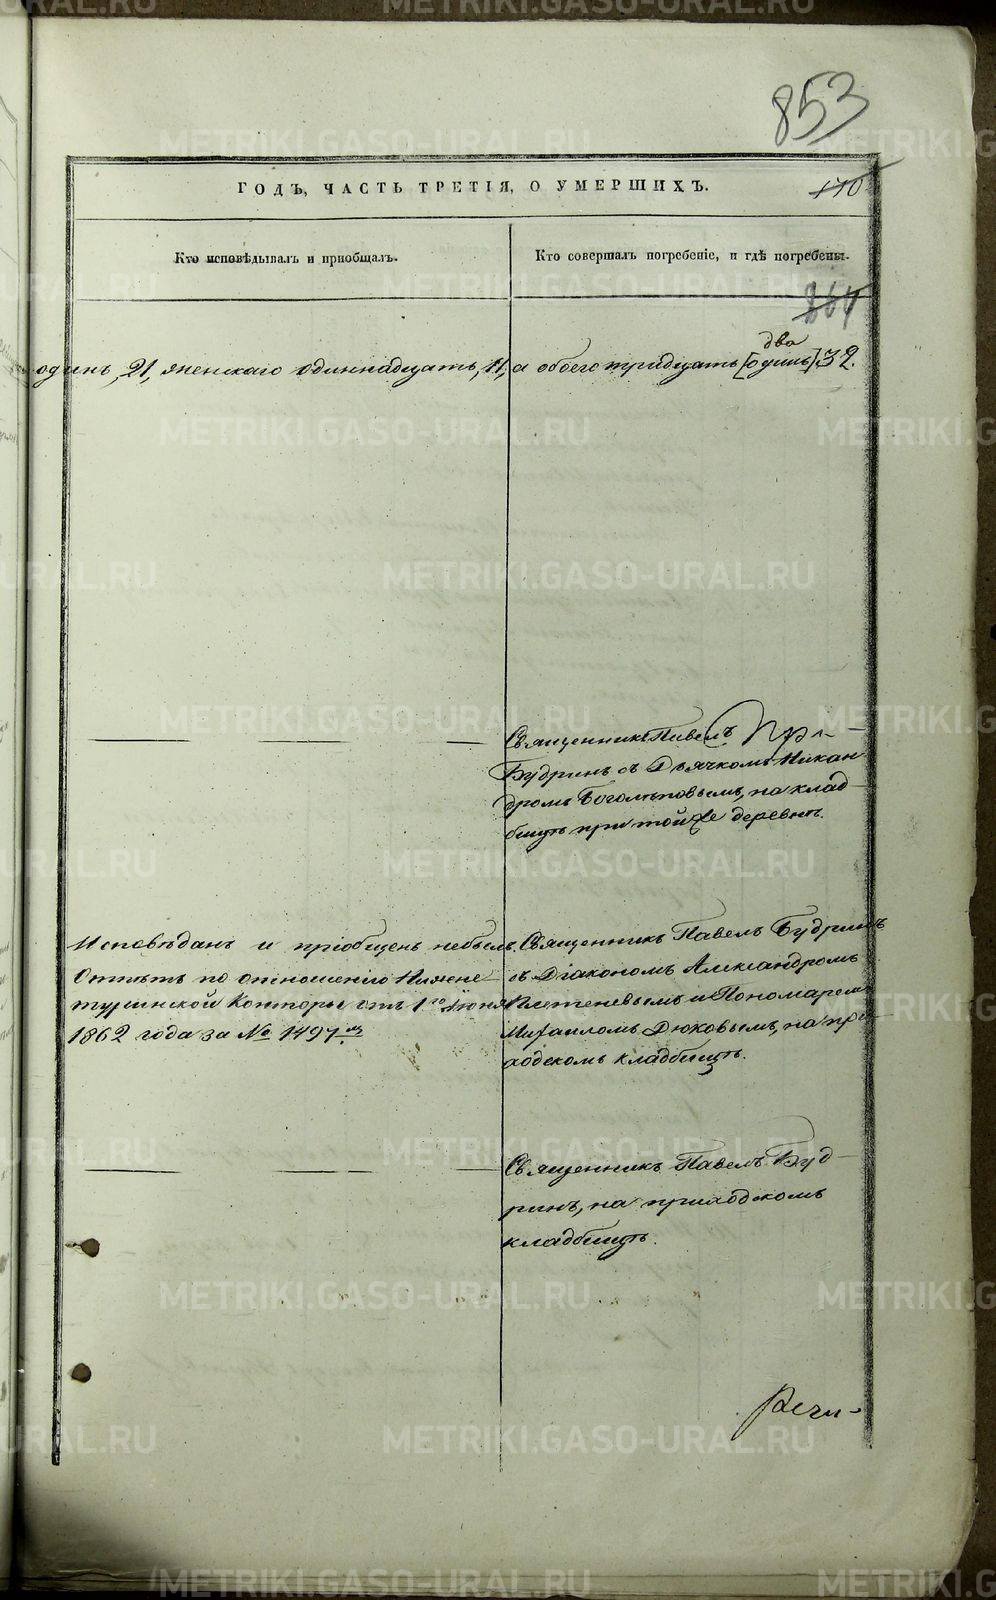 853
ГОДЪ, ЧАСТЬ ТРЕТІЯ, О УМЕРШИХЪ.
170
Кто исповѣдывалъ и пріобщалъ.
Кто совершалъ погребеніе, и гдѣ погребены.
264
два
одинъ, 21, женскаго одиннадцать, 11, а обоего тридцать [одинъ] 32.
Священникъ Павелъ
Будринъ съ Дьячкомъ Никан
дромъ Боголѣповымъ, на клад
бищѣ при той же деревнѣ.
Исповѣданъ и пріобщенъ небылъ.
Отпѣтъ по отношенію Нижне
туринской Конторы отъ 1го Іюня
1862 года за № 1497мъ
Священникъ Павелъ Будринъ
съ Діакономъ Александромъ
Плетеневымъ и Пономаремъ
Михаиломъ Дюковымъ, на при
ходскомъ кладбищѣ.
Священникъ Павелъ Буд
ринъ, на приходскомъ
кладбищѣ.
METRIKI.GASO-URAL.RU